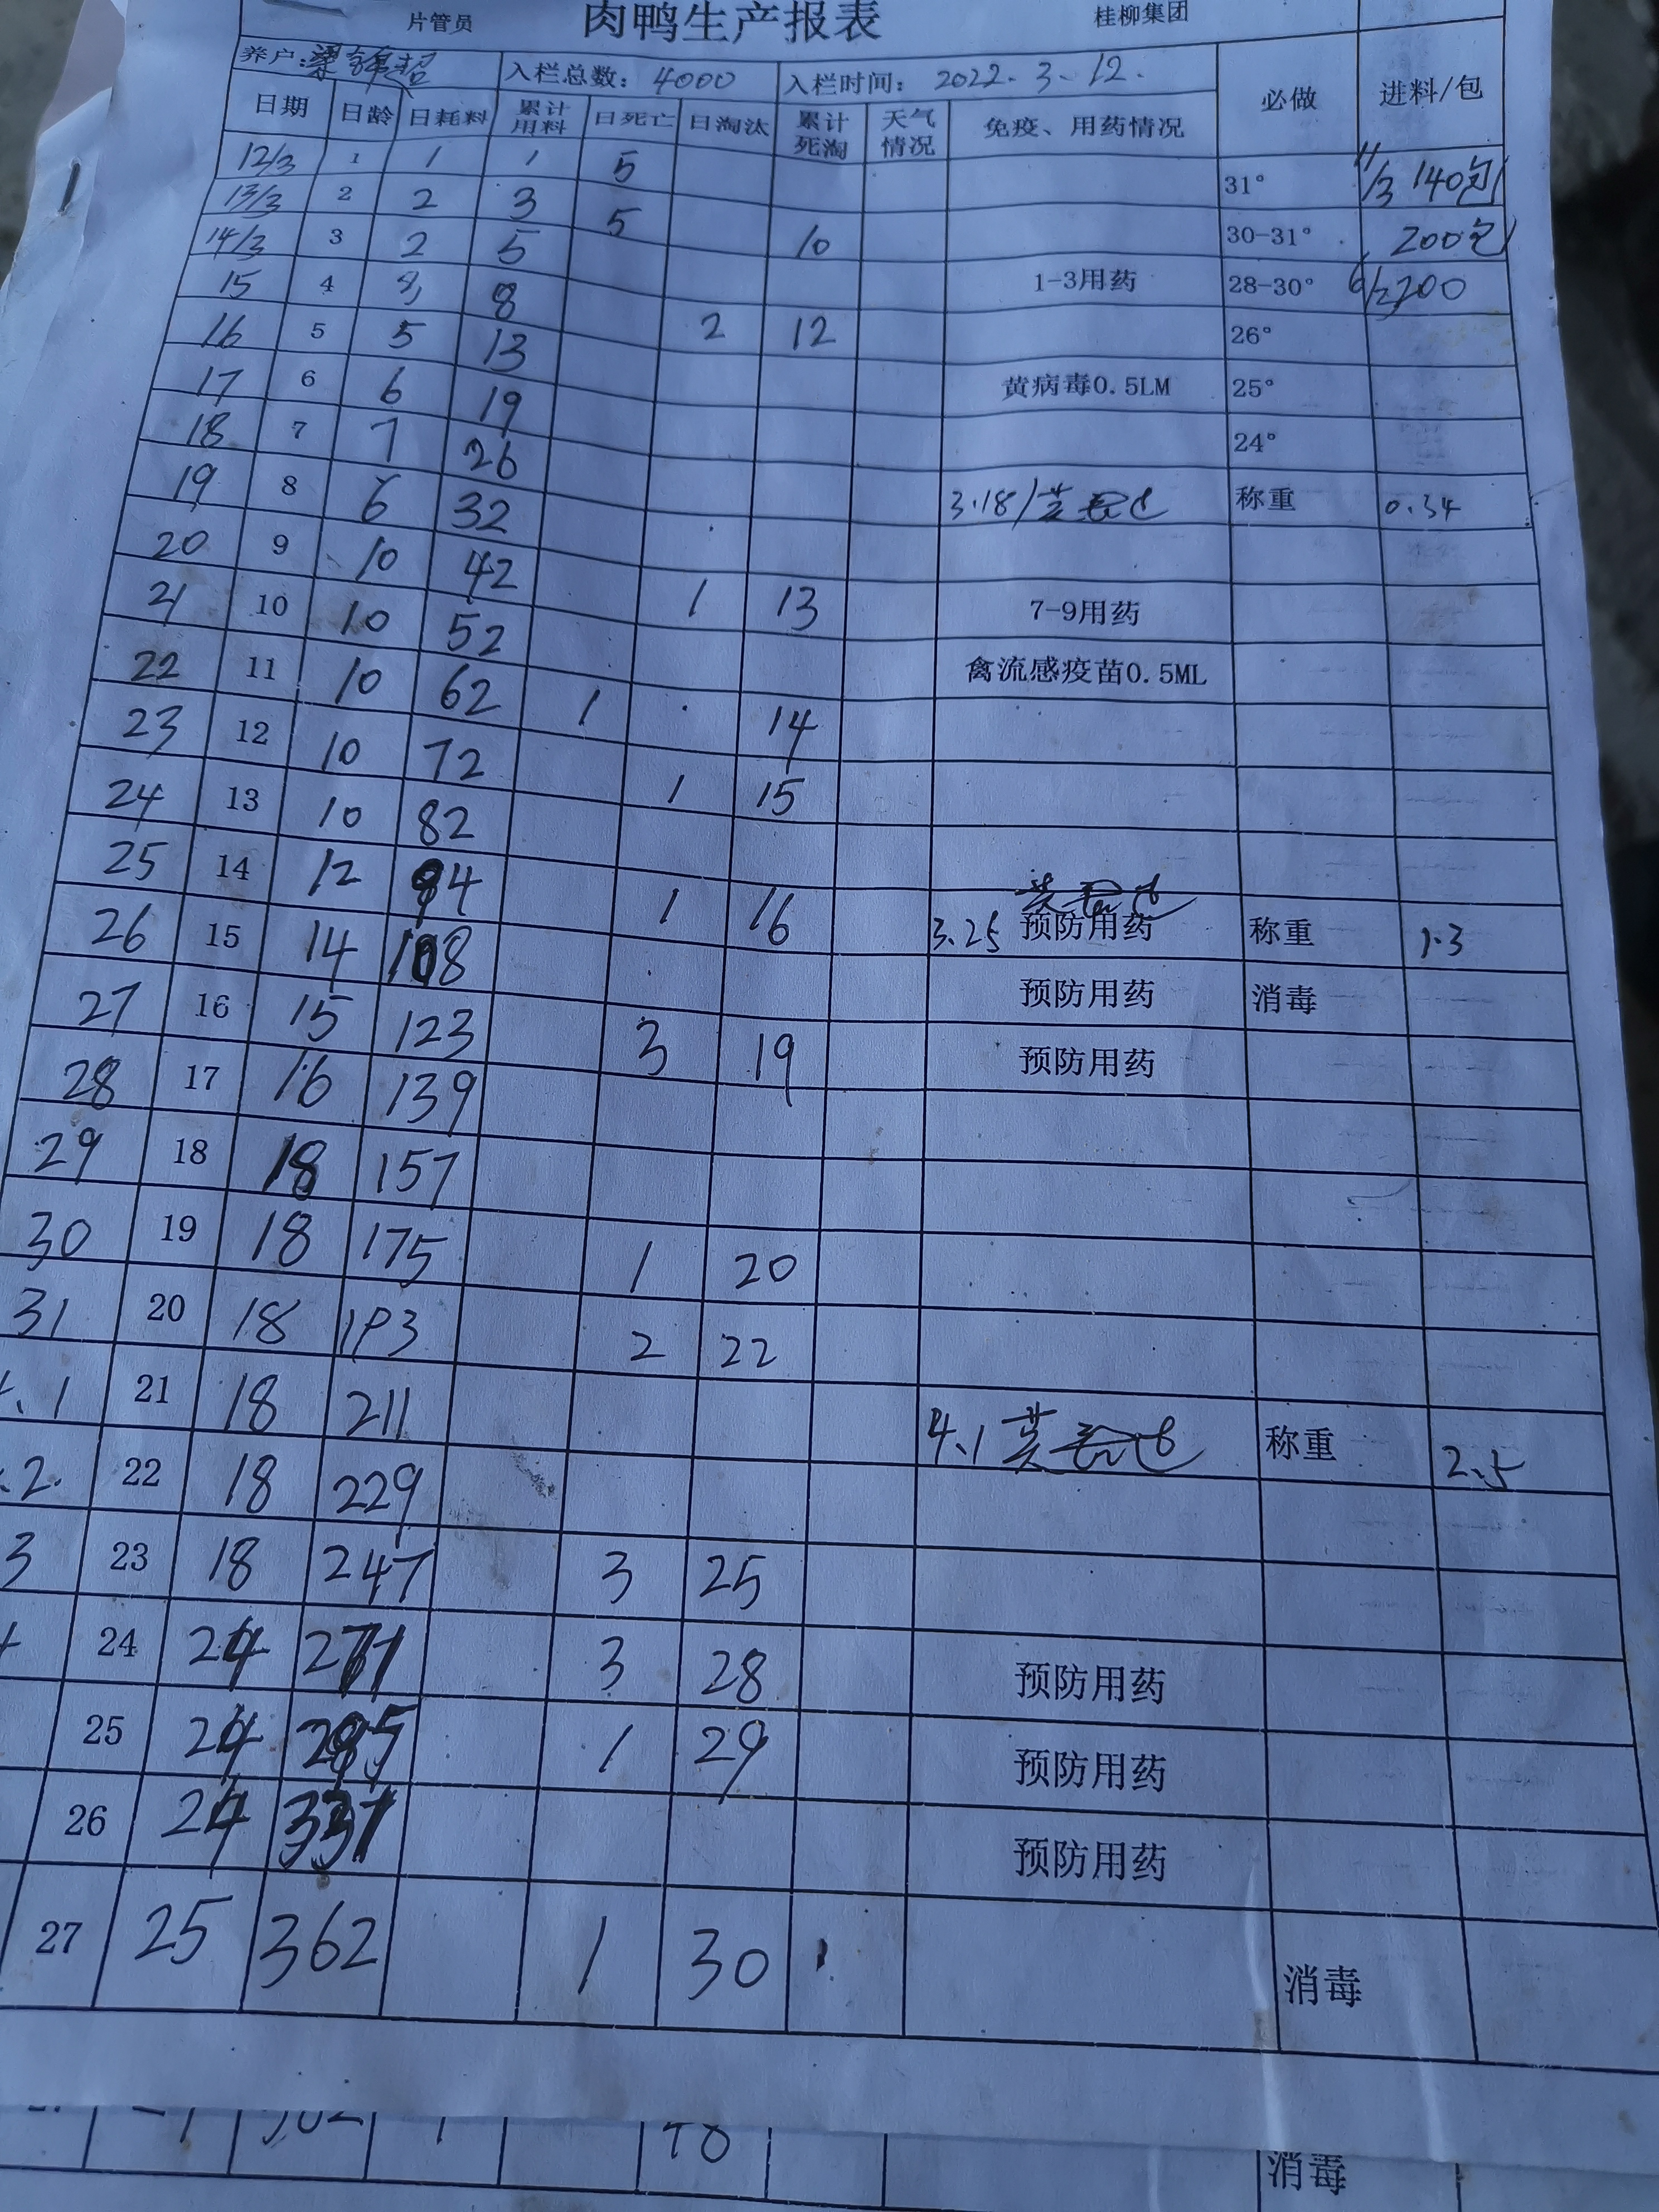 片管员 肉鸭生产报表 桂柳集团
养户: 入栏总数: 4000 入栏时间: 2022.3.12.
日期 日龄 日耗料 累计用料 日死亡 日淘汰 累计死淘 天气情况 免疫、用药情况 必做 进料/包
12/3 1 1 1 5 31° 11/3 140包
13/3 2 2 3 5 10 30-31° 200包
14/3 3 2 5 1-3用药 28-30° 200
15 4 8 2 12 26°
16 5 5 13 黄病毒0.5LM 25°
17 6 6 19 24°
18 7 7 26 3.18/ 称重 0.34
19 8 6 32
20 9 10 42 1 13 7-9用药
21 10 10 52 禽流感疫苗0.5ML
22 11 10 62 1 14
23 12 10 72 1 15
24 13 10 82
25 14 12 94 1 16 3.25 预防用药 称重 1.3
26 15 14 108 预防用药 消毒
27 16 15 123 3 19 预防用药
28 17 16 139
29 18 18 157
30 19 18 175 1 20
31 20 18 193 2 22
.1 21 18 211 4.1 称重 2.5
.2. 22 18 229
3 23 18 247 3 25
24 24 271 3 28 预防用药
25 24 1 29 预防用药
26 24 预防用药
27 25 362 1 30 消毒
消毒